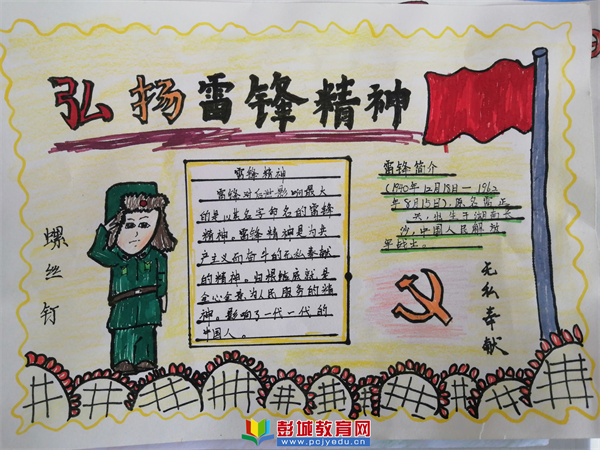 弘扬雷锋精神
雷锋精神
雷锋对后世影响最大
的是以其名字命名的雷锋
精神。雷锋精神是为共
产主义而奋斗的无私奉献
的精神。归根结底就是
全心全意为人民服务的精
神。影响了一代一代的
中国人。
雷锋简介
(1940年12月18日—1962
年8月15日),原名雷正
兴,出生于湖南长
沙,中国人民解放
军战士。
螺丝钉
无私奉献
彭城教育网
www.pcjyedu.cn